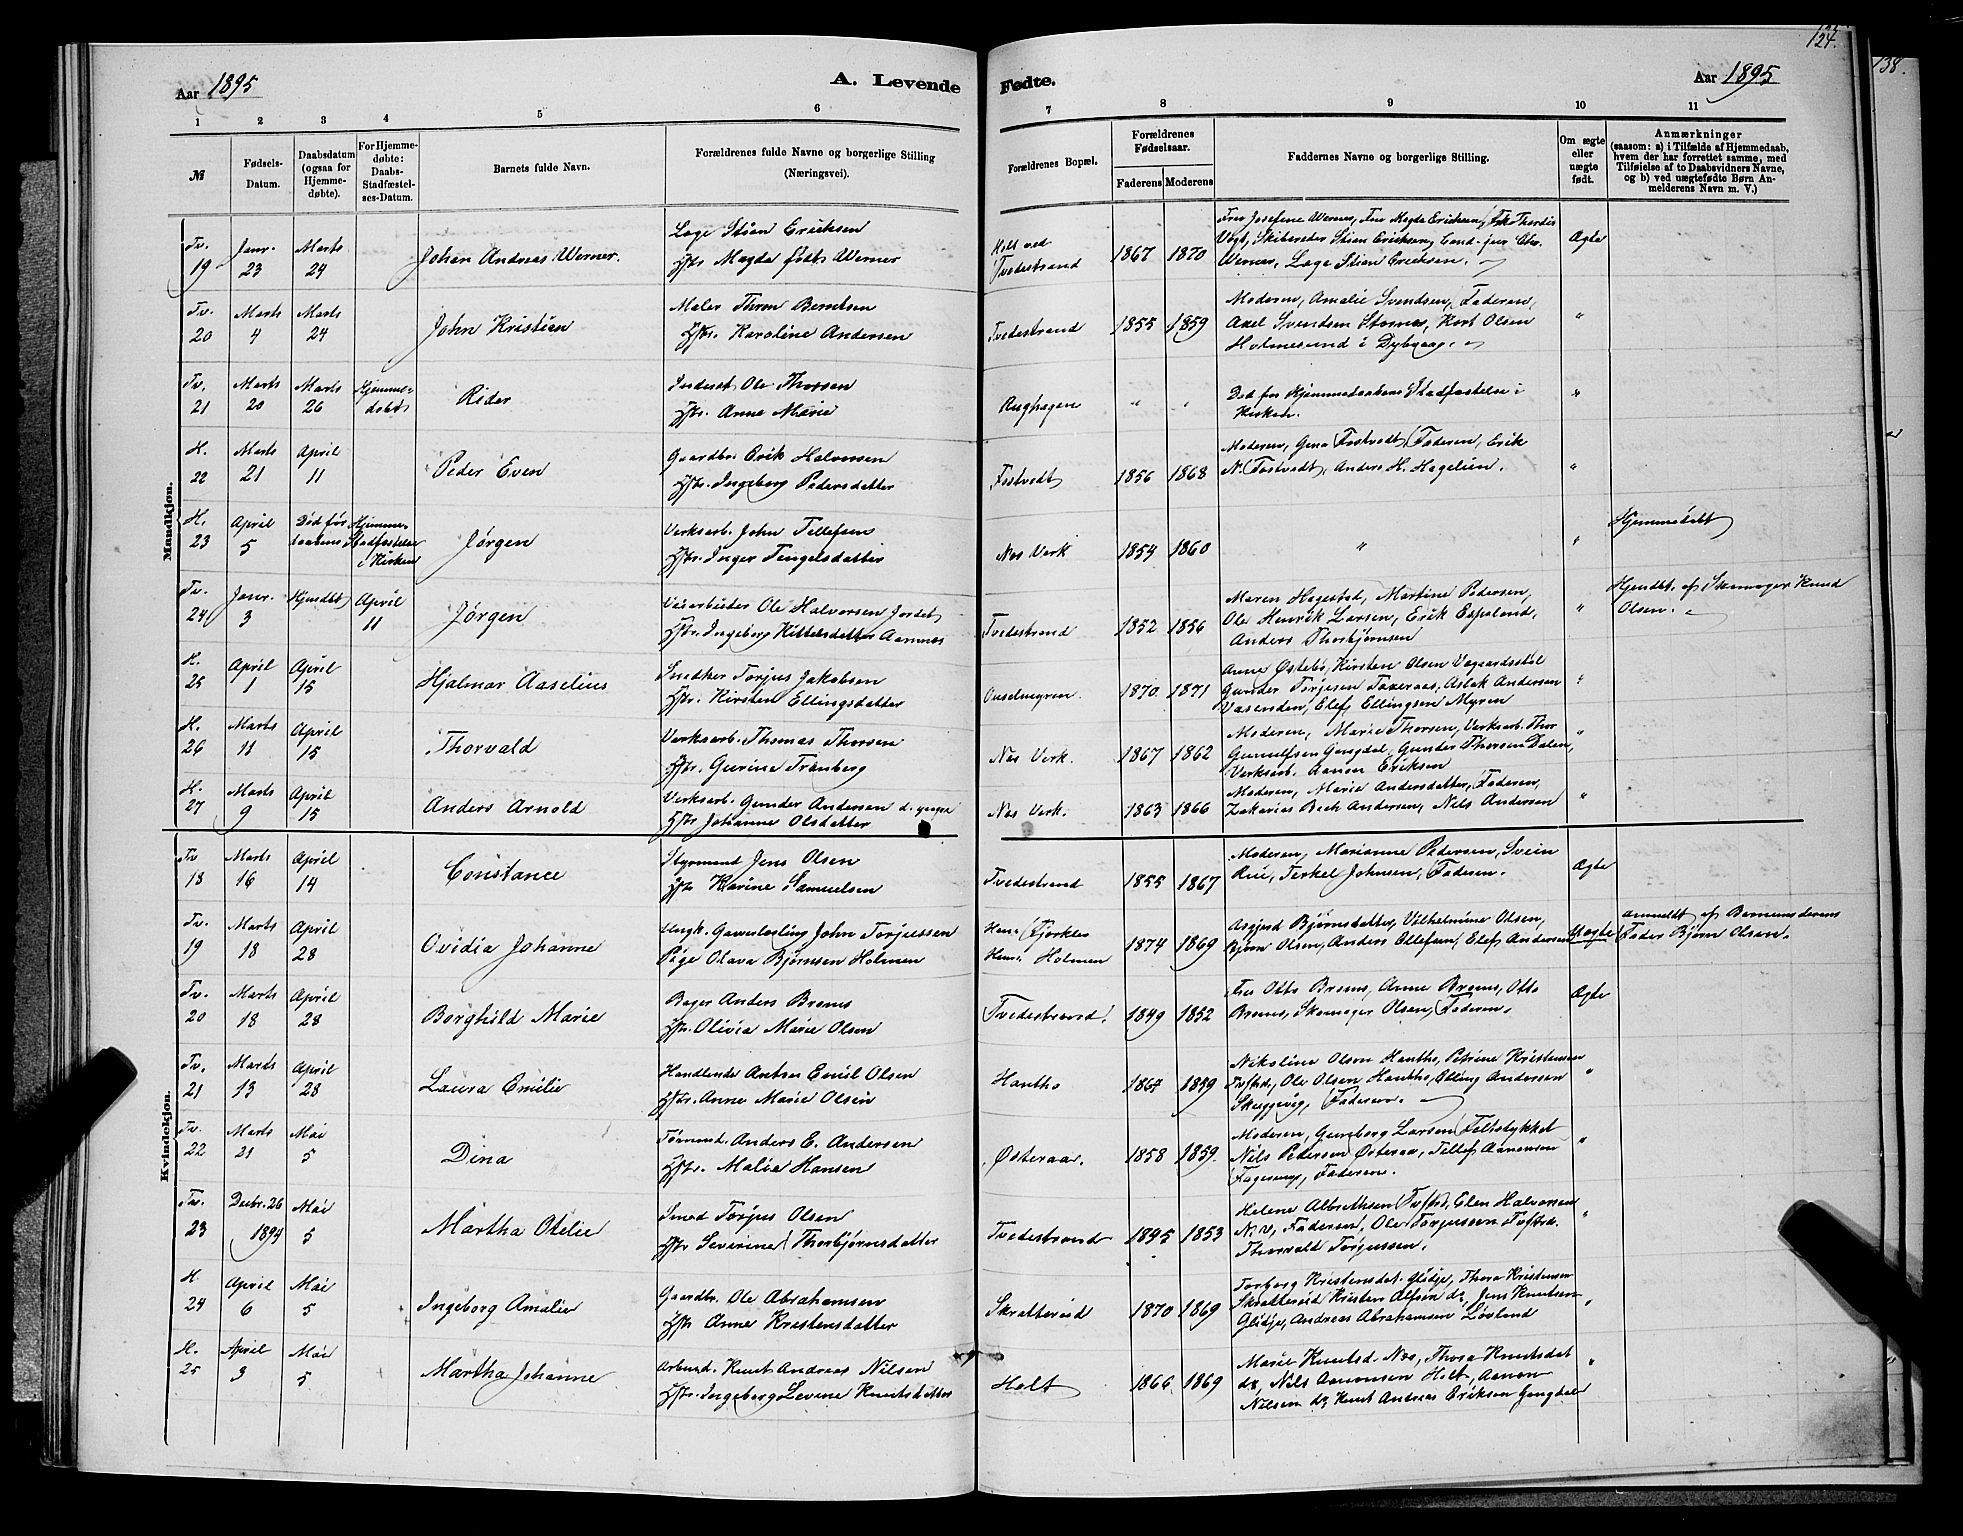 124.
138.
Aar 1895
A. Levende Fødte.
Aar 1895
1 2 3 4 5 6 7 8 9 10 11
№
Fødsels-
Datum.
Daabsdatum
(ogsaa for
Hjemme-
døbte).
For Hjemme-
døbte:
Daabs-
Stadfæstel-
ses-Datum.
Barnets fulde Navn.
Forældrenes fulde Navne og borgerlige Stilling
(Næringsvei).
Forældrenes Bopæl.
Forældrenes
Fødselsaar.
Faderens Moderens
Faddernes Navne og borgerlige Stilling.
Om ægte
eller
uægte
født.
Anmærkninger
(saasom: a) i Tilfælde af Hjemmedaab,
hvem der har forrettet samme, med
Tilføielse af to Daabsvidners Navne,
og b) ved uægtefødte Børn An-
melderens Navn m. V.)
Mandkjøn.
Tv. 19
Janr. 23
Marts 24
Johan Andreas Werner.
Loge Stian Eriksen
Hstr. Magda født Werner
Holt ved
Tvedestrand
1867 1870
Fru Josefine Werner, Fru Magda Eriksen, Frk Thordis
Vogt, Skibsreder Stian Eriksen, Cand. jur Chr.
Werner, Loge Stian Eriksen.
Ægte
Tv. 20
Marts 4
Marts 24
John Kristian
Maler Thron Berntsen
Hstr. Karoline Andersen
Tvedestrand
1855 1859
Moderen, Amalie Svendsen, Faderen,
Axel Svendsen Stornæs, Kort Olsen
Holmesund i Dybvaag.
"
Tv. 21
Marts 20
Marts 26
Hjemme-
døbt
Reider
Inderst Ole Thorsen
Hstr. Anne Marie
Rughagen
" "
Død før Hjemmedaabens Stadfæstelse i
Kirken.
"
H. 22
Marts 21
April 11
Peder Even
Gaardbr. Erik Halvorsen
Hstr. Ingeborg Pedersdatter
Fostvedt
1856 1868
Moderen, Gena Fostvedt, Faderen, Erik
N. Fostvedt, Anders H. Hagelien.
"
H. 23
April 5
Død før Hjemme-
daabens Stadfæstelse
i Kirken
Jørgen
Verksarb. John Tellefsen
Hstr. Inger Tengelsdatter
Nes Verk
1854 1860
"
"
Hjemmedøbt
Tv. 24
Janr. 3
Hjemdøbt
April 11
Jørgen
Veiarbeider Ole Halvorsen Jordet
Hstr. Ingeborg Kittelsdatter Aamnes
Tvedestrand
1852 1856
Maren Hagestad, Martine Pedersen,
Ole Henrik Larsen, Erik Espeland,
Anders Thorbjørnsen
"
Hjemdbt. af Skomager Knud
Olsen.
H. 25
April 1
April 15
Hjalmar Aaselius
Snedker Torjus Jakobsen
Hstr. Kirsten Ellingsdatter
Ouselmyren.
1870 1871
Anne Østebø, Kirsten Olsen Vegaardsstøl
Gunder Torjesen Taxeraas, Aslak Andersen
Vasenden, Elef Ellingsen Myren
"
H. 26
Marts 11
April 15
Thorvald
Verksarb. Thomas Thorsen
Hstr. Gurine Tranberg
Nes Verk.
1867 1862
Moderen, Marie Thorsen, Verksarb. Thor
Gunulfsen Gongdal, Gunder Thorsen Dalen,
Verksarb. Aanon Eriksen
"
H. 27
Marts 9
April 15
Anders Arnold
Verksarb. Gunder Andersen d. yngre
Hstr Johanne Olsdatter
Nes Verk.
1863 1866
Moderen, Marie Andersdatter, Faderen,
Zakarias Bech Andersen, Nils Andersen
"
Kvindekjøn.
Tv 18
Marts 16
April 14
Constance
Styrmand Jens Olsen
Hstr Karine Samuelsen
Tvedestrand
1855 1867
Moderen, Marianne Pedersen, Svein
Rui, Terkel Johnsen, Faderen.
Ægte
Tv. 19
Marts 18
April 28
Ovidia Johanne
Ungk. John Torjussen
Pige Olava Bjørnsen Holmen
Holmen
1874 1869
Asgjerd Bjørnsdatter, Vilhelmine Olsen,
Bjørn Olsen, Anders Ollefsen, Elef Andersen
Uægte
anmeldt af Barnemoderens
Fader Bjørn Olsen.
Tv. 20
Marts 18
April 28
Borghild Marie
Bager Anders Broms
Hstr. Olivia Marie Olsen
Tvedestrand.
1849 1852
Fru Otto Broms, Anne Broms, Otto
Broms, Skomager Olsen, Faderen.
Ægte
Tv. 21
Marts 13
April 28
Laura Emilie
Handlende Anton Emil Olsen
Hstr. Anne Marie Olsen
Hantho
1864 1859
Nikoline Olsen Hantho, Petrine Kristensen
Tvstrd, Ole Olsen Hantho, Elling Andersen
Skuggevig, Faderen.
"
Tv. 22
Marts 21
Mai 5
Dina
Tømmrmd. Anders E. Andersen
Hstr. Malia Hansen
Østeraa.
1858 1859.
Moderen, Gunborg Larsen
Nils Pedersen Østeraa, Tellef Aanonsen
Fagerenge, Faderen.
"
Tv. 23
Decbr. 26
1894
Mai 5
Martha Otelie
Smed Torjus Olsen
Hstr Severine Thorbjørnsdatter
Tvedestrand
1895 1853
Helene Albrethsen Tvstrd, Elen Halvorsen
N. V., Faderen, Ole Torgussen Tvstrd.
Thorvald Torgussen.
"
H 24
April 6
Mai 5
Ingeborg Amalie
Gaardbr. Ole Abrahamsen
Hstr Anne Kristensdatter
Skrattereid
1870 1869
Torborg Kristensdat. Glidje, Thora Kristensen
Skrattereid Kristen Olsen ds, Jens Knutsen
Glidje, Andreas Abrahamsen Løvland
"
H. 25
April 3
Mai 5
Martha Johanne
Arbmd. Knut Andreas Nilsen
Hstr. Ingeborg Levine Knutsdatter
Holt
1866 1869
Marie Knutsd. Næs, Thora Knutsdat
ds, Nils Aanonsen Holt, Aanon
Nilsen ds Knut Andreas Eriksen Gongdal
"